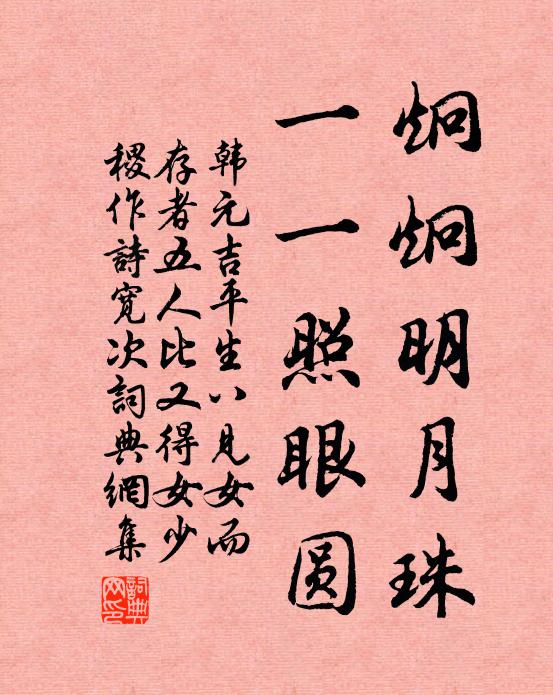 炯炯明月珠
一一照眼圆
韩元吉平生八見女而
存者五人比又得女少
稷作詩寬次詞典網集
詞典网印